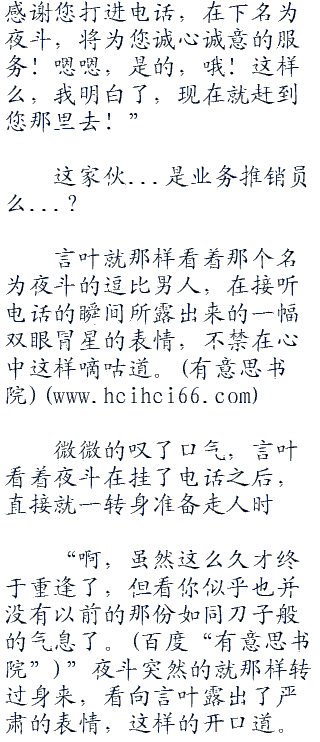 感谢您打进电话，在下名为
夜斗，将为您诚心诚意的服
务！嗯嗯，是的，哦！这样
么，我明白了，现在就赶到
您那里去！”
这家伙...是业务推销员
么...？
言叶就那样看着那个名
为夜斗的逗比男人，在接听
电话的瞬间所露出来的一幅
双眼冒星的表情，不禁在心
中这样嘀咕道。(有意思书
院)(www.hcihci66.com)
微微的叹了口气，言叶
看着夜斗在挂了电话之后，
直接就一转身准备走人时
“啊，虽然这么久才终
于重逢了，但看你似乎也并
没有以前的那份如同刀子般
的气息了。(百度“有意思书
院”)”夜斗突然的就那样转
过身来，看向言叶露出了严
肃的表情，这样的开口道。